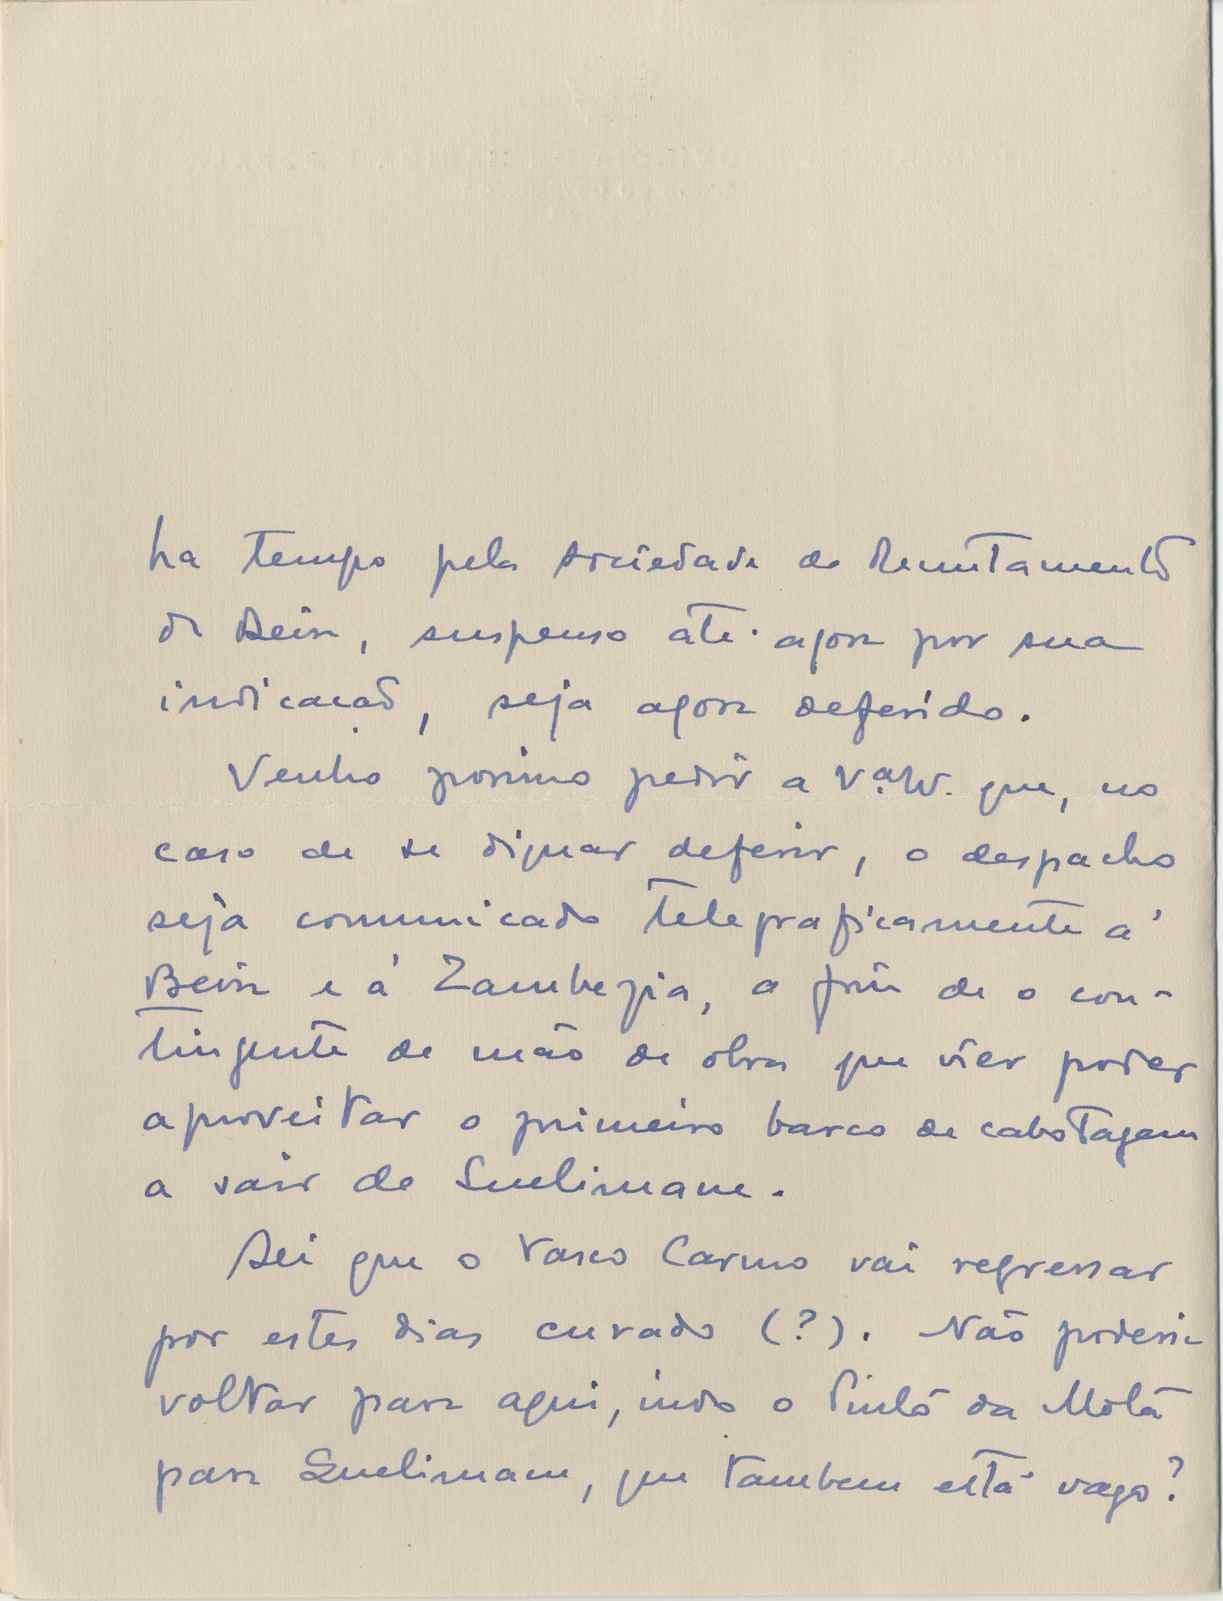 ha tempo pela Sociedade de Recrutamento
da Beira, suspenso até agora por sua
indicação, seja agora deferido.
Venho pedir a V.ª que, no
caso de se dignar deferir, o despacho
seja comunicado telegraficamente á
Beira e á Zambezia, a fim de o con-
tingente de mão de obra que vier poder
aproveitar o primeiro barco de cabotagem
a sair de Quelimane.
Sei que o Vasco Carmo vai regressar
por estes dias curado (?). Não poderia
voltar para aqui, indo o Pinto da Mota
para Quelimane, que tambem está vago?